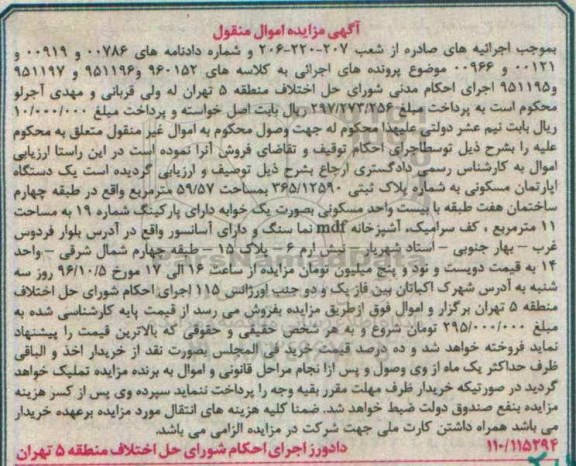 آگهی مزایده اموال منقول
بموجب اجرائیه های صادره از شعب ۲۰۷-۲۲۰-۲۰۶ و شماره دادنامه های ۰۰۷۸۶ و ۰۰۹۱۹ و
۰۰۱۲۱ و ۰۰۹۶۶ موضوع پرونده های اجرائی به کلاسه های ۹۶۰۱۵۲ و ۹۵۱۱۹۶ و ۹۵۱۱۹۷
و۹۵۱۱۹۵ اجرای احکام مدنی شورای حل اختلاف منطقه ۵ تهران له ولی قربانی و مهدی آجرلو
محکوم است به پرداخت مبلغ ۲۹۷/۲۷۳/۲۵۶ ریال بابت اصل خواسته و پرداخت مبلغ ۱۰/۰۰۰/۰۰۰
ریال بابت نیم عشر دولتی علیهذا محکوم له جهت وصول محکوم به اموال غیر منقول متعلق به محکوم
علیه را بشرح ذیل توسطاجرای احکام توقیف و تقاضای فروش آنرا نموده است در این راستا ارزیابی
اموال به کارشناس رسمی دادگستری ارجاع بشرح ذیل توصیف و ارزیابی گردیده است یک دستگاه
اپارتمان مسکونی به شماره پلاک ثبتی ۳۶۵/۱۲۵۹۰ بمساحت ۵۹/۵۷ مترمربع واقع در طبقه چهارم
ساختمان هفت طبقه با بیست واحد مسکونی بصورت یک خوابه دارای پارکینگ شماره ۱۹ به مساحت
۱۱ مترمربع ، کف سرامیک، آشپزخانه mdf نما سنگ و دارای آسانسور واقع در آدرس بلوار فردوس
غرب – بهار جنوبی – استاد شهریار – نبش ارم ۶ – پلاک ۱۵ – طبقه چهارم شمال شرقی – واحد
۱۴ به قیمت دویست و نود و پنج میلیون تومان مزایده از ساعت ۱۶ الی ۱۷ مورخ ۹۶/۱۰/۵ روز سه
شنبه به آدرس شهرک اکباتان بین فاز یک و دو جنب اورژانس ۱۱۵ اجرای احکام شورای حل اختلاف
منطقه ۵ تهران برگزار و اموال فوق ازطریق مزایده بفروش می رسد از قیمت پایه کارشناسی شده به
مبلغ ۲۹۵/۰۰۰/۰۰۰ تومان شروع و به هر شخص حقیقی و حقوقی که بالاترین قیمت را پیشنهاد
نماید فروخته خواهد شد و ده درصد قیمت خرید فی المجلس بصورت نقد از خریدار اخذ و الباقی
ظرف حداکثر یک ماه از وی وصول و پس ازا نجام مراحل قانونی و اموال به برنده مزایده تملیک خواهد
گردید در صورتیکه خریدار ظرف مهلت مقرر بقیه وجه را پرداخت ننماید سپرده وی پس از کسر هزینه
مزایده بنفع صندوق دولت ضبط خواهد شد. ضمنا کلیه هزینه های انتقال مورد مزایده برعهده خریدار
می باشد همراه داشتن کارت ملی جهت شرکت در مزایده الزامی می باشد.
۱۱۰/۱۱۵۲۹۴ دادورز اجرای احکام شورای حل اختلاف منطقه ۵ تهران